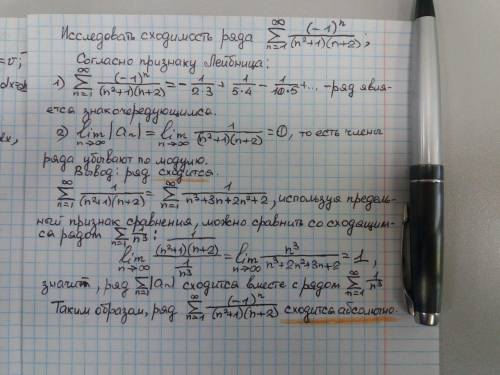 Исследовать сходимость ряда ∑_{n=1}^{∞} (-1)^n/((n²+1)(n+2));
Согласно признаку Лейбница:
1) ∑_{n=1}^{∞} (-1)^n/((n²+1)(n+2)) = -1/(2·3) + 1/(5·4) - 1/(10·5) + ... - ряд явля-
ется знакочередующимся.
2) lim_{n→∞} |a_n| = lim_{n→∞} 1/((n²+1)(n+2)) = 0, то есть члены
ряда убывают по модулю.
Вывод: ряд сходится.
∑_{n=1}^{∞} 1/((n²+1)(n+2)) = ∑_{n=1}^{∞} 1/(n³+3n+2n²+2), используя предель-
ный признак сравнения, можно сравнить со сходящим-
ся рядом ∑_{n=1}^{∞} 1/n³:
lim_{n→∞} (1/((n²+1)(n+2)))/(1/n³) = lim_{n→∞} n³/(n³+2n²+3n+2) = 1,
значит, ряд ∑_{n=1}^{∞} |a_n| сходится вместе с рядом ∑_{n=1}^{∞} 1/n³
Таким образом, ряд ∑_{n=1}^{∞} (-1)^n/((n²+1)(n+2)) сходится абсолютно.